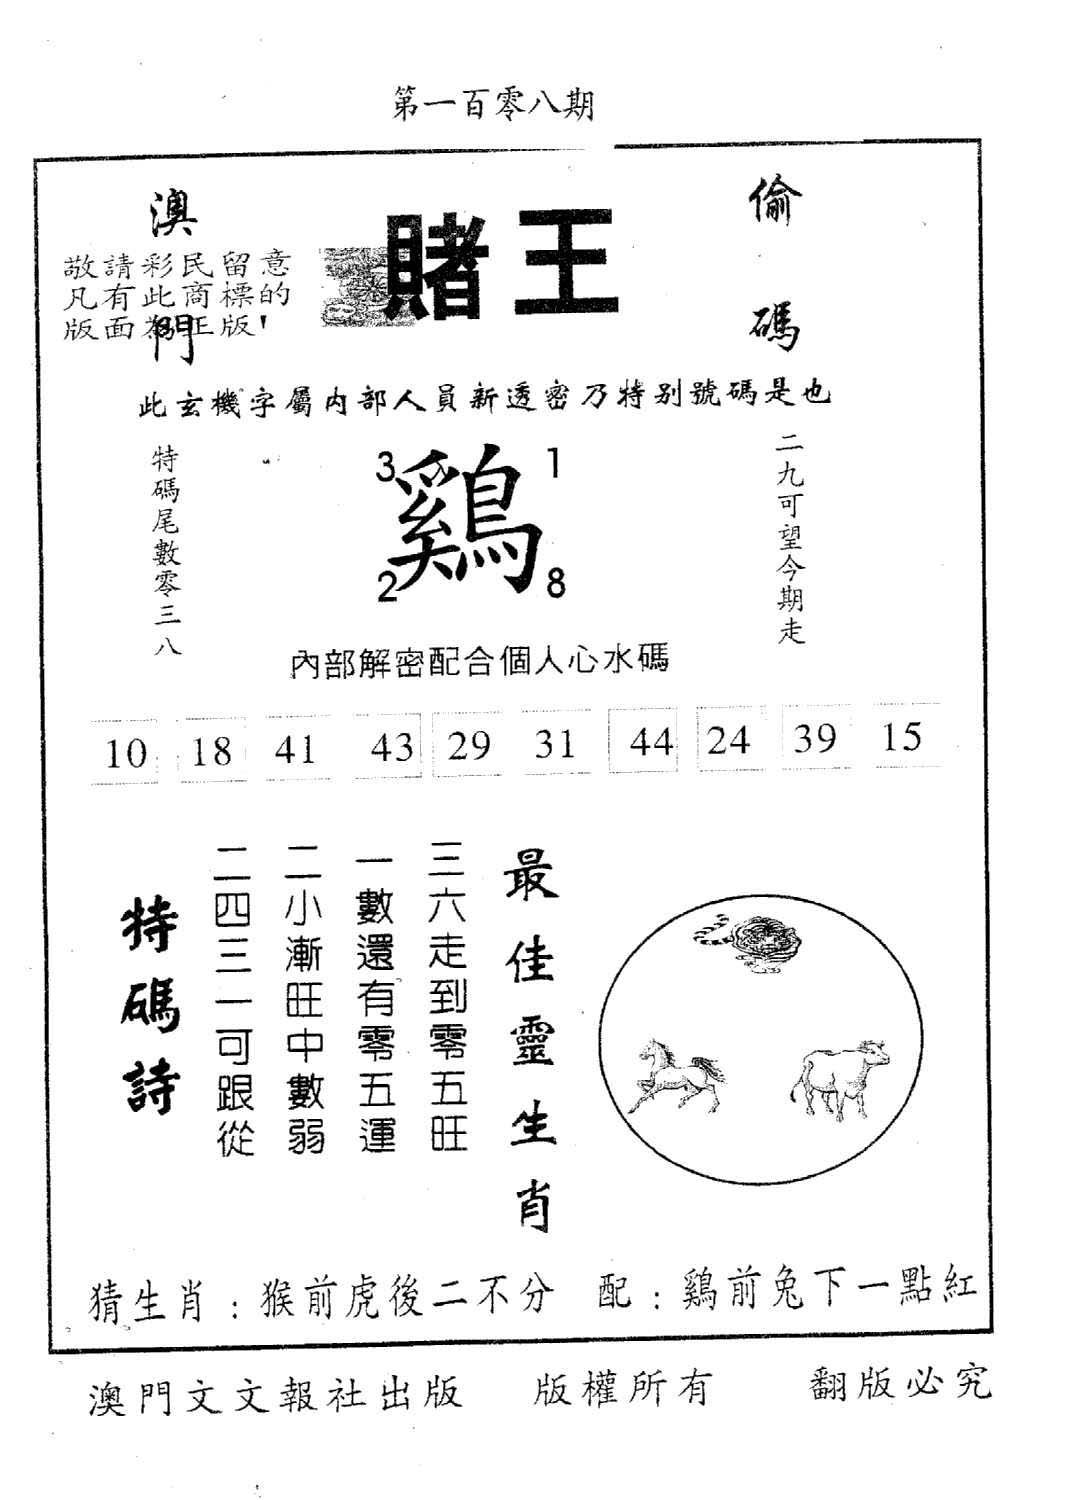 第一百零八期
澳門
賭王
偷碼
敬請彩民留意
凡有此商標的
版面為正版!
此玄機字屬内部人員新透密乃特别號碼是也
特碼尾數零三八
3 1
鷄
2 8
二九可望今期走
內部解密配合個人心水碼
10 18 41 43 29 31 44 24 39 15
最佳靈生肖
三六走到零五旺
一數還有零五運
二小漸旺中數弱
二四三一可跟從
特碼詩
猜生肖:猴前虎後二不分 配:鷄前兔下一點紅
澳門文文報社出版 版權所有 翻版必究